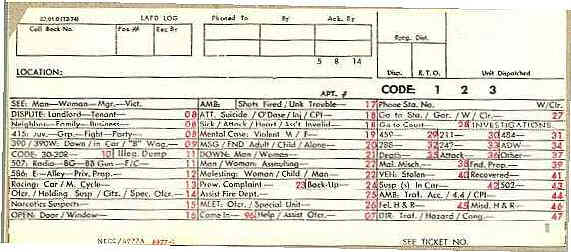 LAPD LOG Phoned To By Ack. By
Call Back No. Pos # Rec By
Rptg. Dist.
5 8 14
LOCATION: Disp. R.T.O. Unit Dispatched
APT. # CODE: 1 2 3
SEE: Man—Woman—Mgr.—Vict. AMB: Shots Fired / Unk Trouble— 17 Phone Sta. No. W/Clr.—
DISPUTE: Landlord—Tenant— 08 ATT. Suicide / O'Dose / Inj / CPI— 18 Go to Sta. / Gar. / W / Clr.— 27
Neighbor—Family—Business— 08 Sick / Attack / Heart / Ass't Invalid— 18 Go to Court— 28 INVESTIGATIONS
415: Juv.—Grp.—Fight—Forty— 08 Mental Case: Violent M / F— 19 459— 29 211— 30 484— 31
390 / 390W: Down / in Car / "B" Wag.— 09 MSG / FND Adult / Child / Alone— 20 288— 32 242— 33 ADW— 34
CODE: 30-30R— 10 Illeg. Dump 11 DOWN: Man / Woman— 21 Death— 35 Attack— 36 Other— 37
507: Radio—BG—BB Gun—F/C— 11 Man / Woman Assaulting— 22 Mal. Misch— 38 Fnd. Prop.— 39
586: E—Alley—Priv. Prop.— 12 Molesting: Woman / Child / Man— 22 VEH: Stolen— 40 Recovered— 41
Racing: Car / M. Cycle— 13 Prow. Complaint— 23 Back-Up— 24 Susp (s) In Car— 42 502— 43
Ofcr. / Holding Susp / Citz. / Spec. Ofcr.— 14 Assist Fire Dept.— 25 AMB. Traf. Acc. / 4.4 / CPI— 44
Narcotics Suspects— 15 MEET: Ofcr. / Special Unit— 26 Fel. H & R— 45 Misd. H & R— 46
OPEN: Door / Window— 16 Come In— 96 Help / Assist Ofcr.— 07 DIR: Traf. / Hazard / Cong.— 47
SEE TICKET NO.